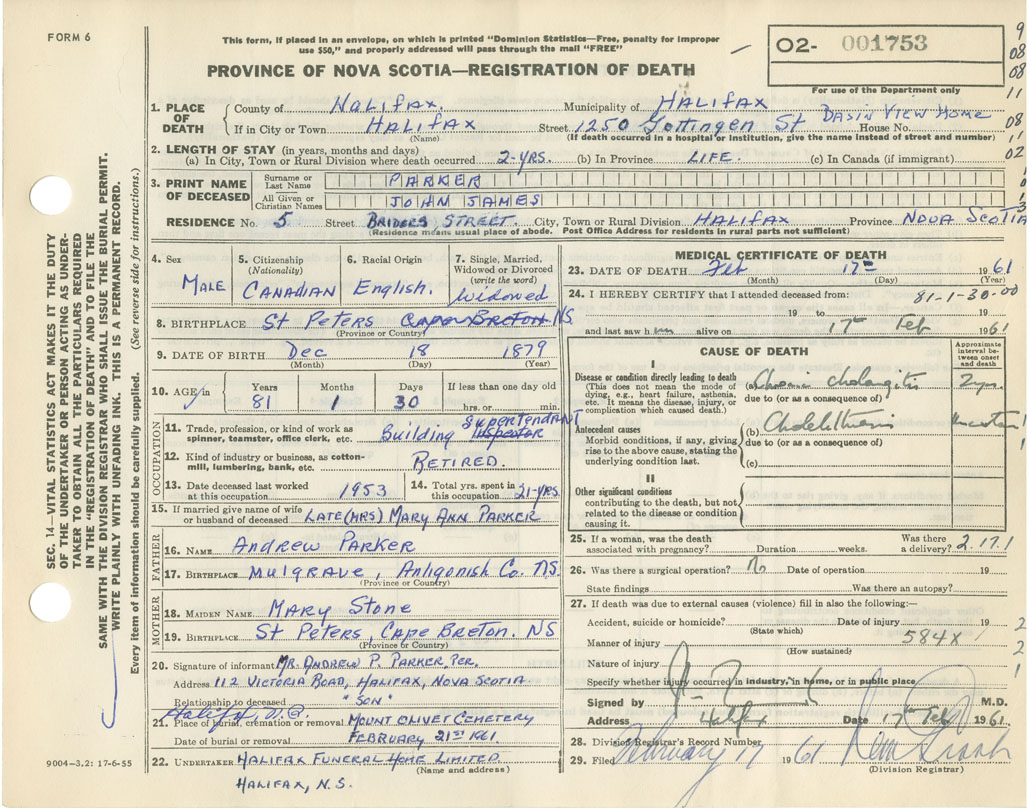 FORM 6
This form, if placed in an envelope, on which is printed "Dominion Statistics—Free, penalty for improper
use $50," and properly addressed will pass through the mail "FREE"
PROVINCE OF NOVA SCOTIA—REGISTRATION OF DEATH
02- 001753
For use of the Department only
9
08
08
11
08
11
02
SEC. 14—VITAL STATISTICS ACT MAKES IT THE DUTY
OF THE UNDERTAKER OR PERSON ACTING AS UNDER-
TAKER TO OBTAIN ALL THE PARTICULARS REQUIRED
IN THE "REGISTRATION OF DEATH" AND TO FILE THE
SAME WITH THE DIVISION REGISTRAR WHO SHALL ISSUE THE BURIAL PERMIT.
WRITE PLAINLY WITH UNFADING INK. THIS IS A PERMANENT RECORD.
Every item of information should be carefully supplied. (See reverse side for instructions.)
1. PLACE OF DEATH County of Halifax. Municipality of HALIFAX
If in City or Town HALIFAX Street 1250 Gottingen St House No. BASIN VIEW HOME
(Name) (If death occurred in a hospital or institution, give the name instead of street and number)
2. LENGTH OF STAY (in years, months and days)
(a) In City, Town or Rural Division where death occurred 2-YRS. (b) In Province LIFE. (c) In Canada (if immigrant)
3. PRINT NAME OF DECEASED Surname or Last Name PARKER
All Given or Christian Names JOHN JAMES
RESIDENCE No. 5 Street STREET. City, Town or Rural Division HALIFAX Province NOVA SCOTIA
(Residence means usual place of abode. Post Office Address for residents in rural parts not sufficient)
4. Sex MALE
5. Citizenship (Nationality) CANADIAN
6. Racial Origin English.
7. Single, Married, Widowed or Divorced (write the word) Widowed
8. BIRTHPLACE St Peters Cape BRETON N.S.
(Province or Country)
9. DATE OF BIRTH Dec 18 1879
(Month) (Day) (Year)
10. AGE Years 81 Months 1 Days 30 If less than one day old hrs. or min.
OCCUPATION
11. Trade, profession, or kind of work as spinner, teamster, office clerk, etc. Building Inspector
12. Kind of industry or business, as cotton-mill, lumbering, bank, etc. RETIRED.
13. Date deceased last worked at this occupation 1953
14. Total yrs. spent in this occupation 21-YRS.
15. If married give name of wife or husband of deceased LATE (MRS) MARY ANN PARKER
FATHER
16. NAME ANDREW PARKER
17. BIRTHPLACE MULGRAVE, Antigonish Co. N.S.
(Province or Country)
MOTHER
18. MAIDEN NAME MARY STONE
19. BIRTHPLACE ST PETERS, CAPE BRETON. NS
(Province or Country)
20. Signature of informant MR. ANDREW P. PARKER, PER.
Address 112 VICTORIA ROAD, HALIFAX, NOVA SCOTIA
Relationship to deceased "SON"
Halifax, N.S.
21. Place of burial, cremation or removal MOUNT OLIVET CEMETERY
Date of burial or removal FEBRUARY 21ST 1961.
22. UNDERTAKER HALIFAX FUNERAL HOME LIMITED
(Name and address)
HALIFAX, N.S.
9004-3.2: 17-6-55
MEDICAL CERTIFICATE OF DEATH
23. DATE OF DEATH Feb 17th 1961
(Month) (Day) (Year)
24. I HEREBY CERTIFY that I attended deceased from: 81-1-30-00
19 to 19
and last saw him alive on 17th Feb 1961
CAUSE OF DEATH
Approximate interval between onset and death
I
Disease or condition directly leading to death
(This does not mean the mode of dying, e.g., heart failure, asthenia, etc. It means the disease, injury, or complication which caused death.)
(a) cholangitis 2 yrs.
due to (or as a consequence of)
Antecedent causes
Morbid conditions, if any, giving rise to the above cause, stating the underlying condition last.
(b)
due to (or as a consequence of)
(c)
II
Other significant conditions
contributing to the death, but not related to the disease or condition causing it.
25. If a woman, was the death associated with pregnancy? Duration weeks. Was there a delivery? 2.17.1
26. Was there a surgical operation? No Date of operation 19
State findings Was there an autopsy?
27. If death was due to external causes (violence) fill in also the following:—
Accident, suicide or homicide? Date of injury 19
(State which)
Manner of injury 584X
(How sustained)
Nature of injury
Specify whether injury occurred in industry, in home, or in public place
Signed by M.D.
Address Halifax Date 17th Feb 1961.
28. Division Registrar's Record Number
29. Filed February 17 1961
(Division Registrar)